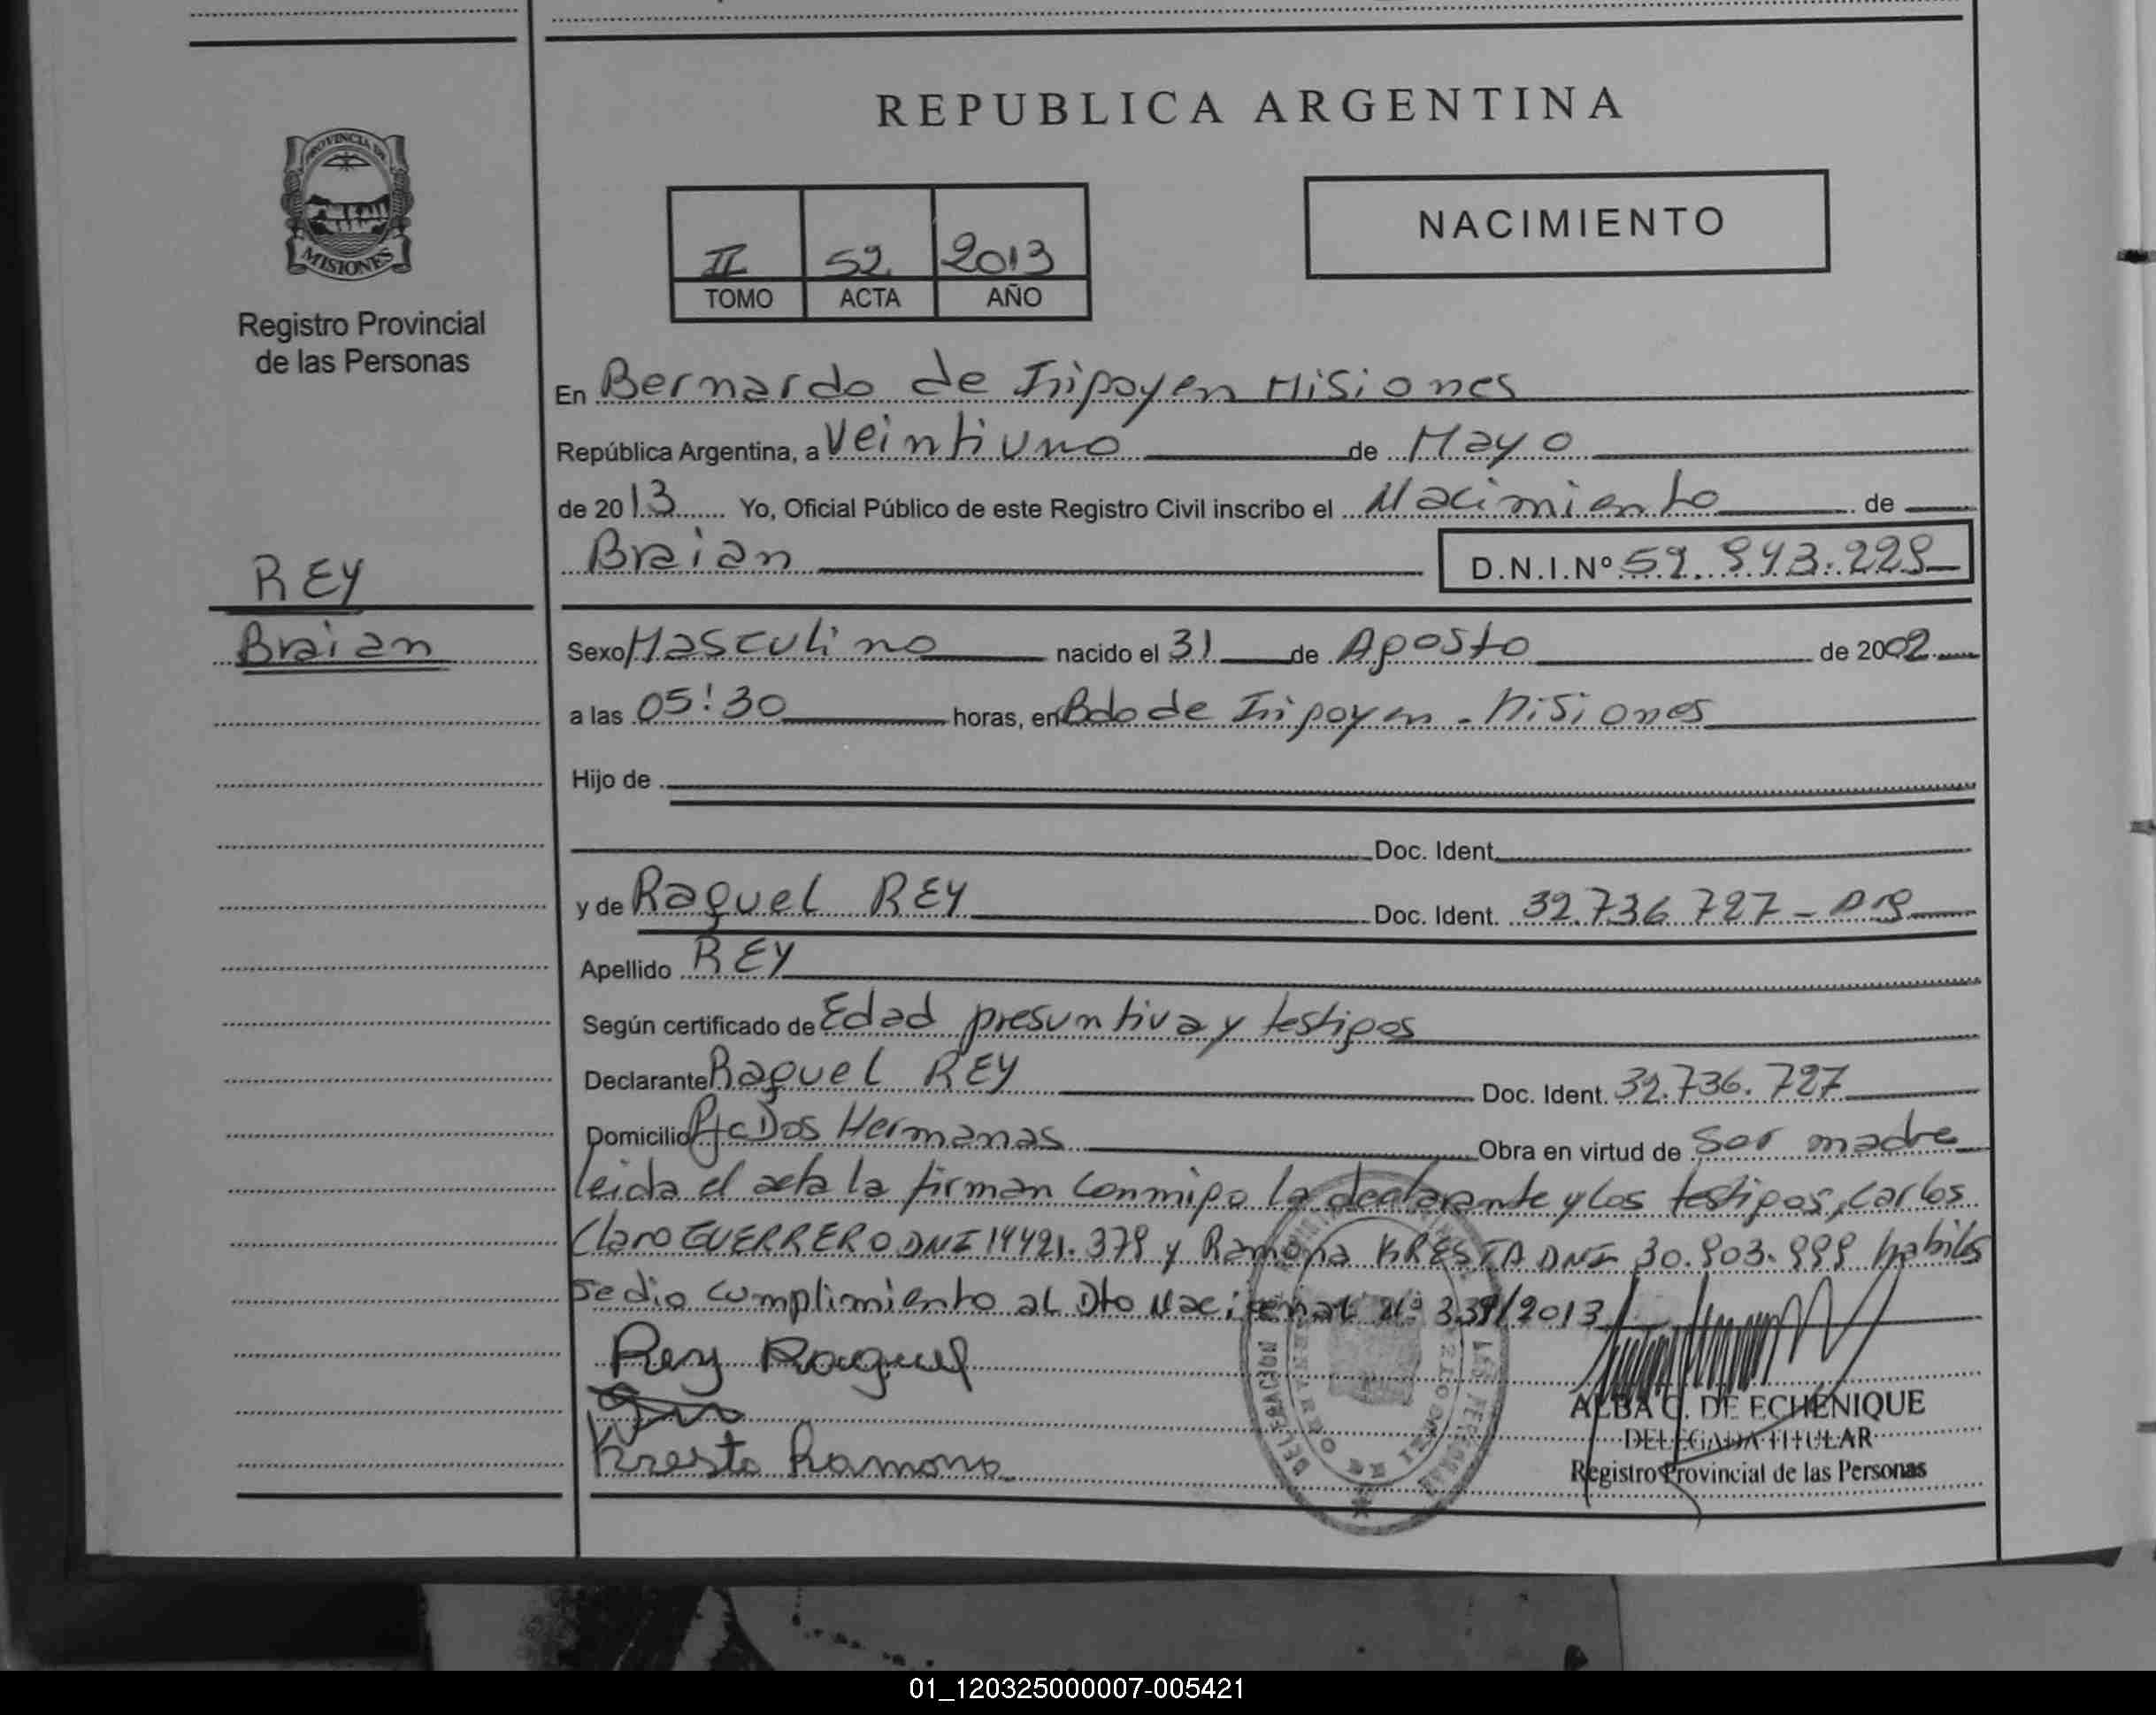 REPUBLICA ARGENTINA
PROVINCIA DE
MISIONES
Registro Provincial
de las Personas
NACIMIENTO
II 52 2013
TOMO ACTA AÑO
En Bernardo de Irigoyen Misiones
República Argentina, a Veintiuno de Mayo
de 2013 Yo, Oficial Público de este Registro Civil inscribo el Nacimiento de
Braian D.N.I.Nº
REY
Braian
Sexo Masculino nacido el 31 de Agosto de 2002
a las 05:30 horas, en Bdo de Irigoyen - Misiones
Hijo de
Doc. Ident.
y de Raquel REY Doc. Ident. 32.736.727 - Arg
Apellido REY
Según certificado de Edad presuntiva y testigos
Declarante Raquel REY Doc. Ident. 32.736.727
Domicilio Pje Dos Hermanas Obra en virtud de Ser madre
leida el acta la firman conmigo la declarante y los testigos, Carlos
Claro GUERRERO DNI y Ramona KRESTA DNI habiles
se dio cumplimiento al Dto Nacional Nº /2013
Rey Raquel
Kresta Ramona
DELEGACION
ALBA C. DE ECHENIQUE
DELEGADA TITULAR
Registro Provincial de las Personas
01_120325000007-005421